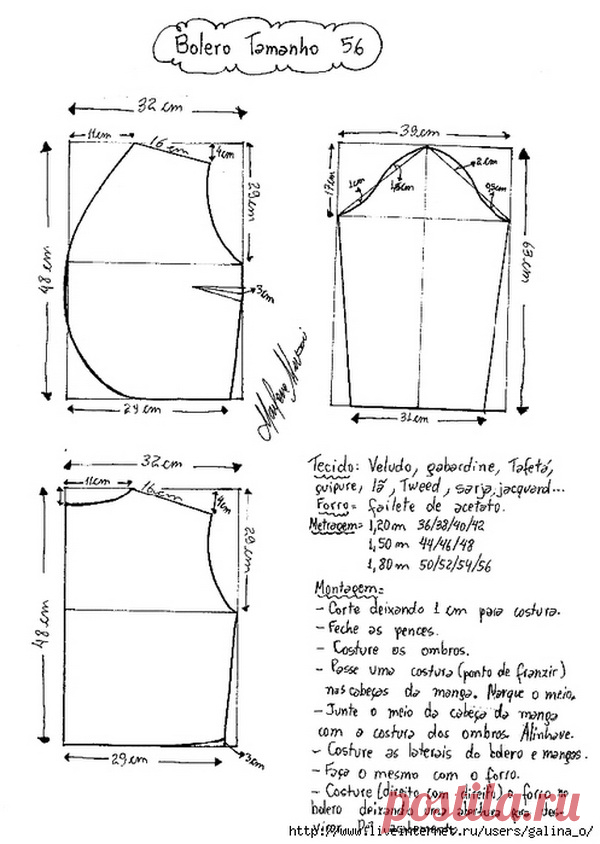 Bolero Tamanho 56
32 cm
11cm
16 cm
4cm
29 cm
48 cm
3cm
29 cm
39cm
17cm
1cm
1,5cm
2 cm
0,5cm
63 cm
31cm
32 cm
11cm
16 cm
4cm
29 cm
48 cm
29 cm
3cm
Tecido: Veludo, gabardine, Tafetá,
guipure, lã, Tweed, sarja, jacquard...
Forro= failete de acetato.
Metragem= 1,20m 36/38/40/42
1,50m 44/46/48
1,80m 50/52/54/56
Montagem=
- Corte deixando 1 cm para costura.
- Feche as pences.
- Costure os ombros.
- Passe uma costura (ponto de franzir)
nas cabeças da manga. Marque o meio.
- Junte o meio da cabeça da manga
com a costura dos ombros. Alinhave.
- Costure as laterais do bolero e mangas.
- Faça o mesmo com o forro.
- Costure (direito com direito) o forro no
bolero deixando uma abertura para des-
virar.
postila.ru
http://www.liveinternet.ru/users/galina_o/